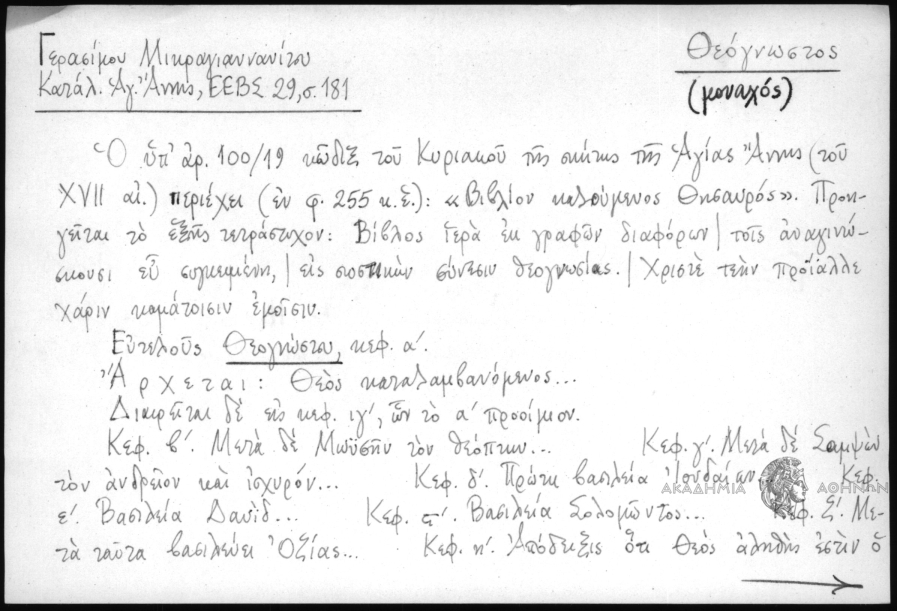 Γερασίμου Μικραγιαννανίτου
Θεόγνωστος
Κατάλ. Ἁγ. Ἄννης, ΕΕΒΣ 29, σ. 181
(μοναχός)
Ὁ ὑπ' ἀρ. 100/19 κῶδιξ τοῦ Κυριακοῦ τῆς σκήτης τῆς Ἁγίας Ἄννης (τοῦ
XVII αἰ.) περιέχει (ἐν φ. 255 κ.ἑ.): «Βιβλίον καλούμενος Θησαυρός». Προη-
γεῖται τὸ ἑξῆς τετράστιχον: Βίβλος ἱερὰ ἐκ γραφῶν διαφόρων | τοῖς ἀναγινώ-
σκουσι εὖ συγκειμένη, | εἰς σύνεσιν θεογνωσίας. | Χριστὲ τεὴν προΐαλλε
χάριν καμάτοισιν ἐμοῖσιν.
Εὐτελοῦς Θεογνώστου, κεφ. α'.
Ἄρχεται: Θεὸς καταλαμβανόμενος...
Διαιρεῖται δὲ εἰς κεφ. ιγ', ὧν τὸ α' προοίμιον.
Κεφ. β'. Μετὰ δὲ Μωϋσῆν τὸν θεόπτην... Κεφ. γ'. Μετὰ δὲ Σαμψὼν
τὸν ἀνδρεῖον καὶ ἰσχυρόν... Κεφ. δ'. Πρώτη βασιλεία Ἰουδαίων... Κεφ.
ΑΚΑΔΗΜΙΑ ΑΘΗΝΩΝ
ε'. Βασιλεία Δαυῒδ... Κεφ. ς'. Βασιλεία Σολομῶντος... Κεφ. ζ'. Με-
τὰ ταῦτα βασιλεύει Ὀζίας... Κεφ. η'. Ἀπόδειξις ὅτι Θεὸς ἀληθὴς ἐστὶν ὁ